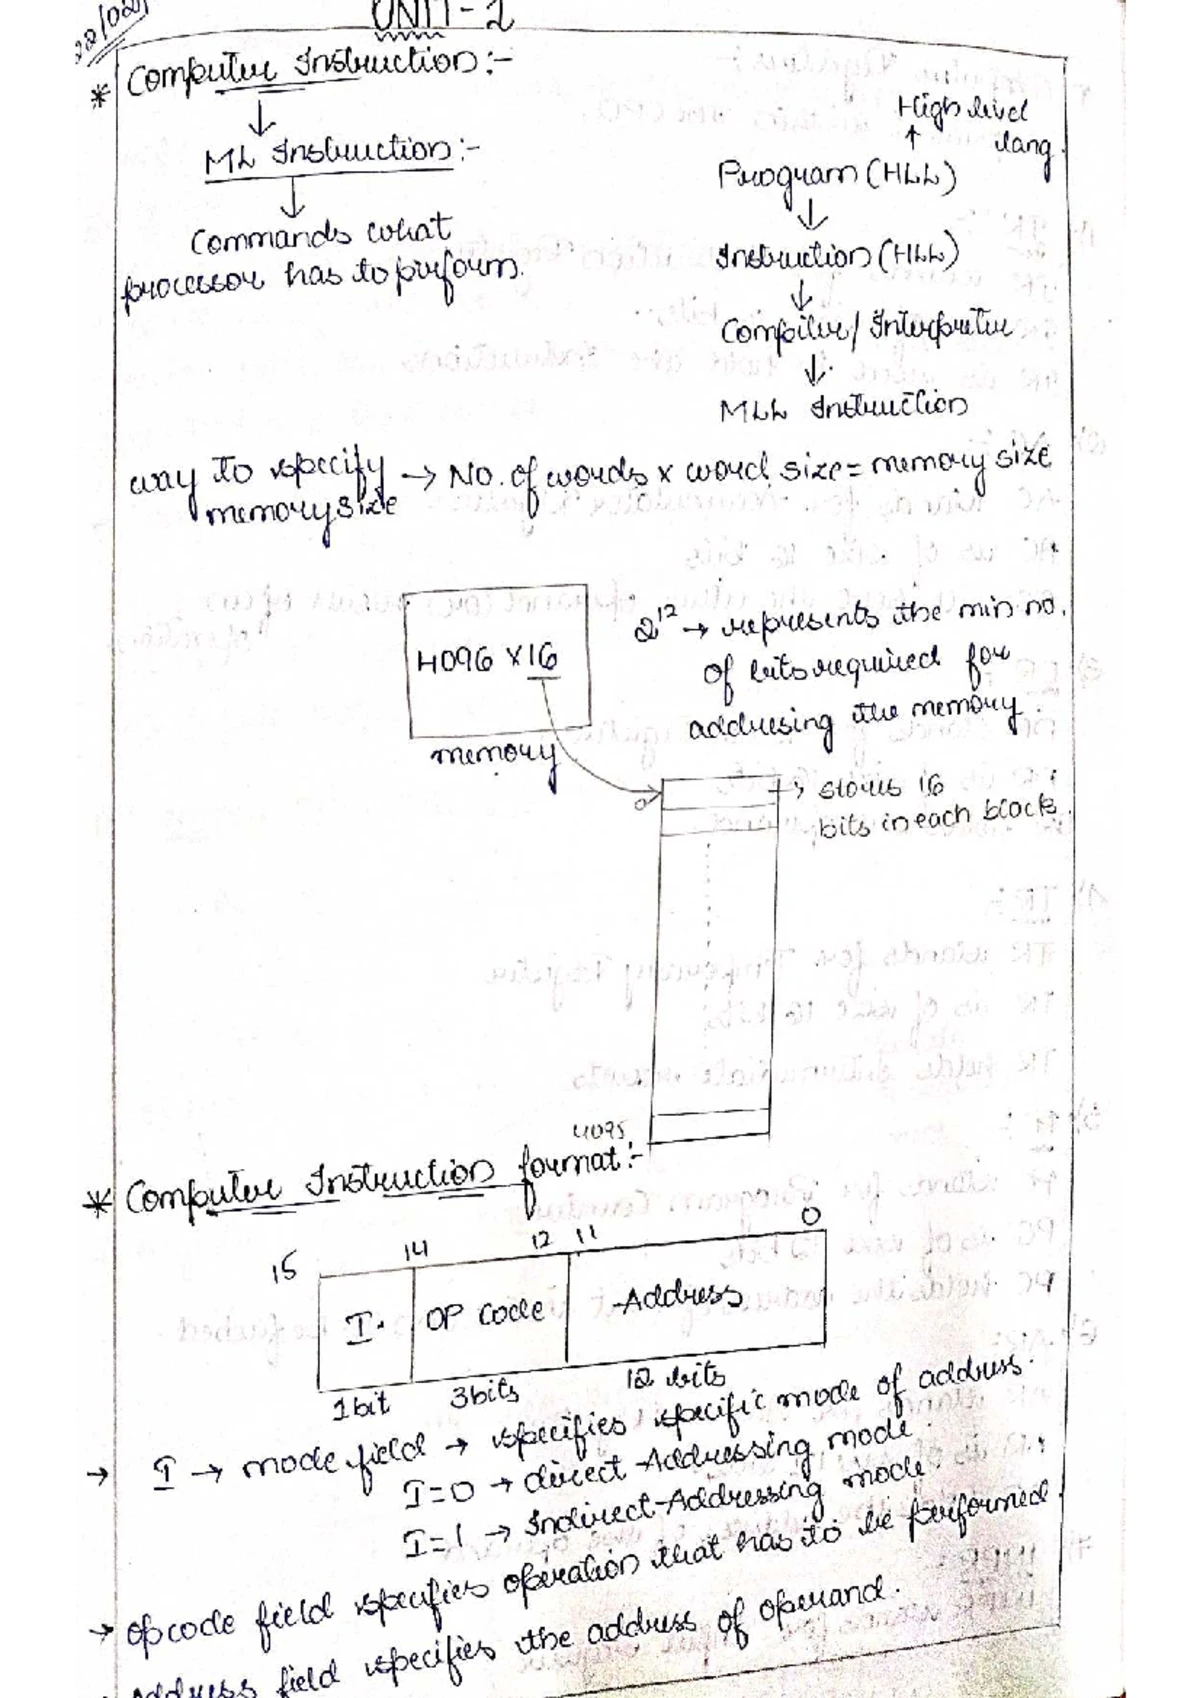 UNIT-2
* Computer Instruction:-
↓
ML Instruction:-
↓
Commands what
processor has to perform.
High level
lang.
↑
Program (HLL)
↓
Instruction (HLL)
↓
Compiler/Interpreter
↓
MLL Instruction
way to specify → No. of words x word size = memory size
memory size
4096 x 16
memory
2¹² → represents the min no.
of bits required for
addressing the memory.
0
→ stores 16
bits in each block.
4095
* Computer Instruction format:-
15 14 12 11 0
I. OP Code Address
1 bit 3 bits 12 bits
→ I → mode field → specifies specific mode of address.
I=0 → direct-Addressing mode.
I=1 → Indirect-Addressing mode.
→ Opcode field specifies operation that has to be performed.
Address field specifies the address of operand.